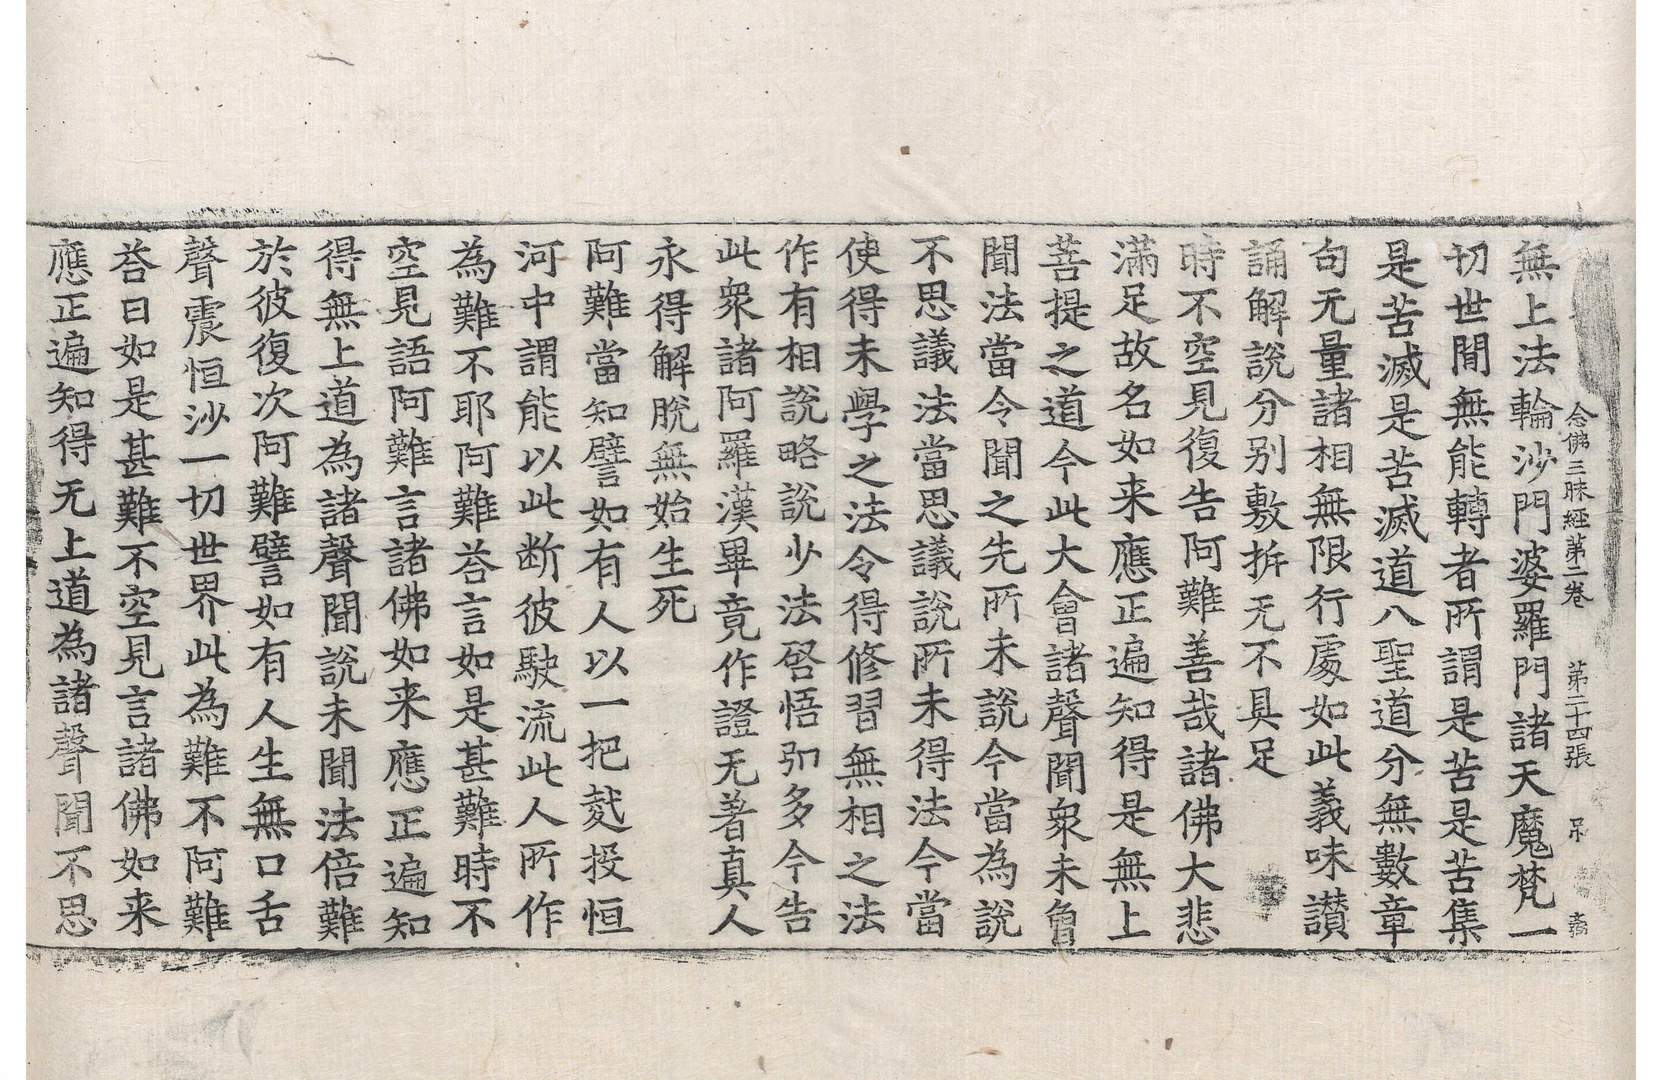 念佛三昧經第二卷　第二十四張　吊
無上法輪沙門婆羅門諸天魔梵一
切世間無能轉者所謂是苦是苦集
是苦滅是苦滅道八聖道分無數章
句无量諸相無限行處如此義味讃
誦解說分别敷拆无不具足
時不空見復告阿難善哉諸佛大悲
滿足故名如来應正遍知得是無上
菩提之道今此大會諸聲聞衆未曾
聞法當令聞之先所未說今當為說
不思議法當思議說所未得法今當
使得未學之法令得修習無相之法
作有相說略說少法啓悟弘多今告
此衆諸阿羅漢畢竟作證无著真人
永得解脫無始生死
阿難當知譬如有人以一把䴬投恒
河中謂能以此断彼駛流此人所作
為難不耶阿難荅言如是甚難時不
空見語阿難言諸佛如来應正遍知
得無上道為諸聲聞說未聞法倍難
於彼復次阿難譬如有人生無口舌
聲震恒沙一切世界此為難不阿難
荅曰如是甚難不空見言諸佛如来
應正遍知得无上道為諸聲聞不思